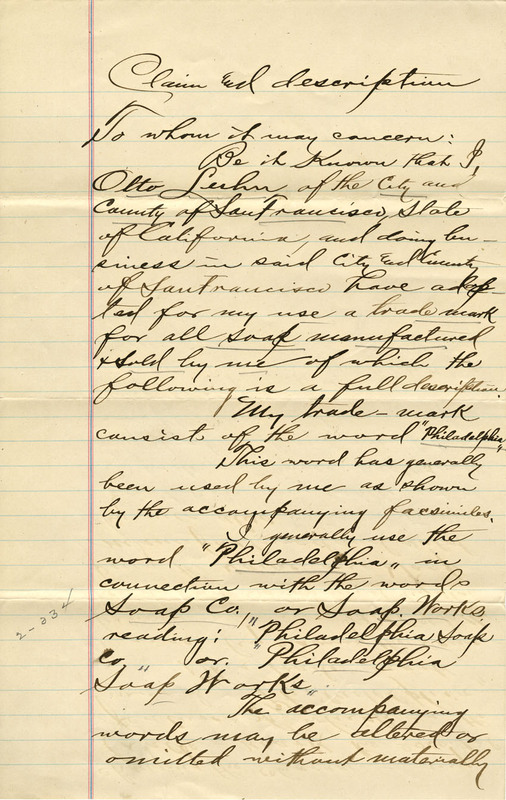 Claim and description
To whom it may concern:
Be it Known that I,
Otto Luhn of the City and
County of San Francisco, State
of California, and doing bu-
siness in said City and County
of San Francisco have adop-
ted for my use a trade mark
for all soap manufactured
& sold by me of which the
following is a full description.
My trade-mark
consist of the word "Philadelphia"
This word has generally
been used by me as shown
by the accompanying facsimiles.
I generally use the
word "Philadelphia" in
connection with the words
Soap Co," or Soap Works
reading: "Philadelphia Soap
Co" or "Philadelphia
Soap Works".
The accompanying
words may be altered or
omitted without materially
2-234